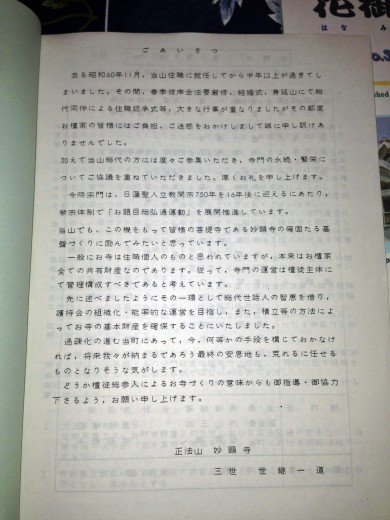 花御
はなみ
ごあいさつ
去る昭和60年11月、当山住職に就任してから半年以上が過ぎてし
まいました。その間、春季彼岸会法要厳修、結婚式、身延山にて総
代同伴による住職認承式等、大きな行事が重なりましたがその都度
お檀家の皆様にはご負担、ご迷惑をおかけしまして誠に申し訳けあ
りませんでした。
加えて当山総代の方には度々ご参集いただき、寺門の永続・繁栄に
ついてご協議を重ねていただきました。厚くお礼を申し上げます。
今時宗門は、日蓮聖人立教開宗750年を16年後に迎えるにあたり、
挙宗体制で「お題目総弘通運動」を展開推進しています。
当山でも、この機をもって皆様の菩提寺である妙顕寺の確固たる基
盤づくりに励んでみたいと思っています。
一般にお寺は住職個人のものと思われていますが、本来はお檀家
全ての共有財産なのであります。従って、寺門の運営は檀徒主体に
て管理構成すべきであると考えています。
先に述べましたようにその一環として総代世話人の智恵を借り、
護持会の組織化・能率的な運営を目指し、また、積立等の方法によ
ってお寺の基本財産を確保することにいたしました。
過疎化の進む当町にあって、今、何等かの手段を構じておかなけ
れば、将来我々が納まるであろう最終の安息地も、荒れるに任せる
ものとなりそうな気がします。
どうか檀徒総参入によるお寺づくりの意味からも御指導・御協力
下さるよう、お願い申し上げます。
正法山 妙顕寺
三世 世継一道